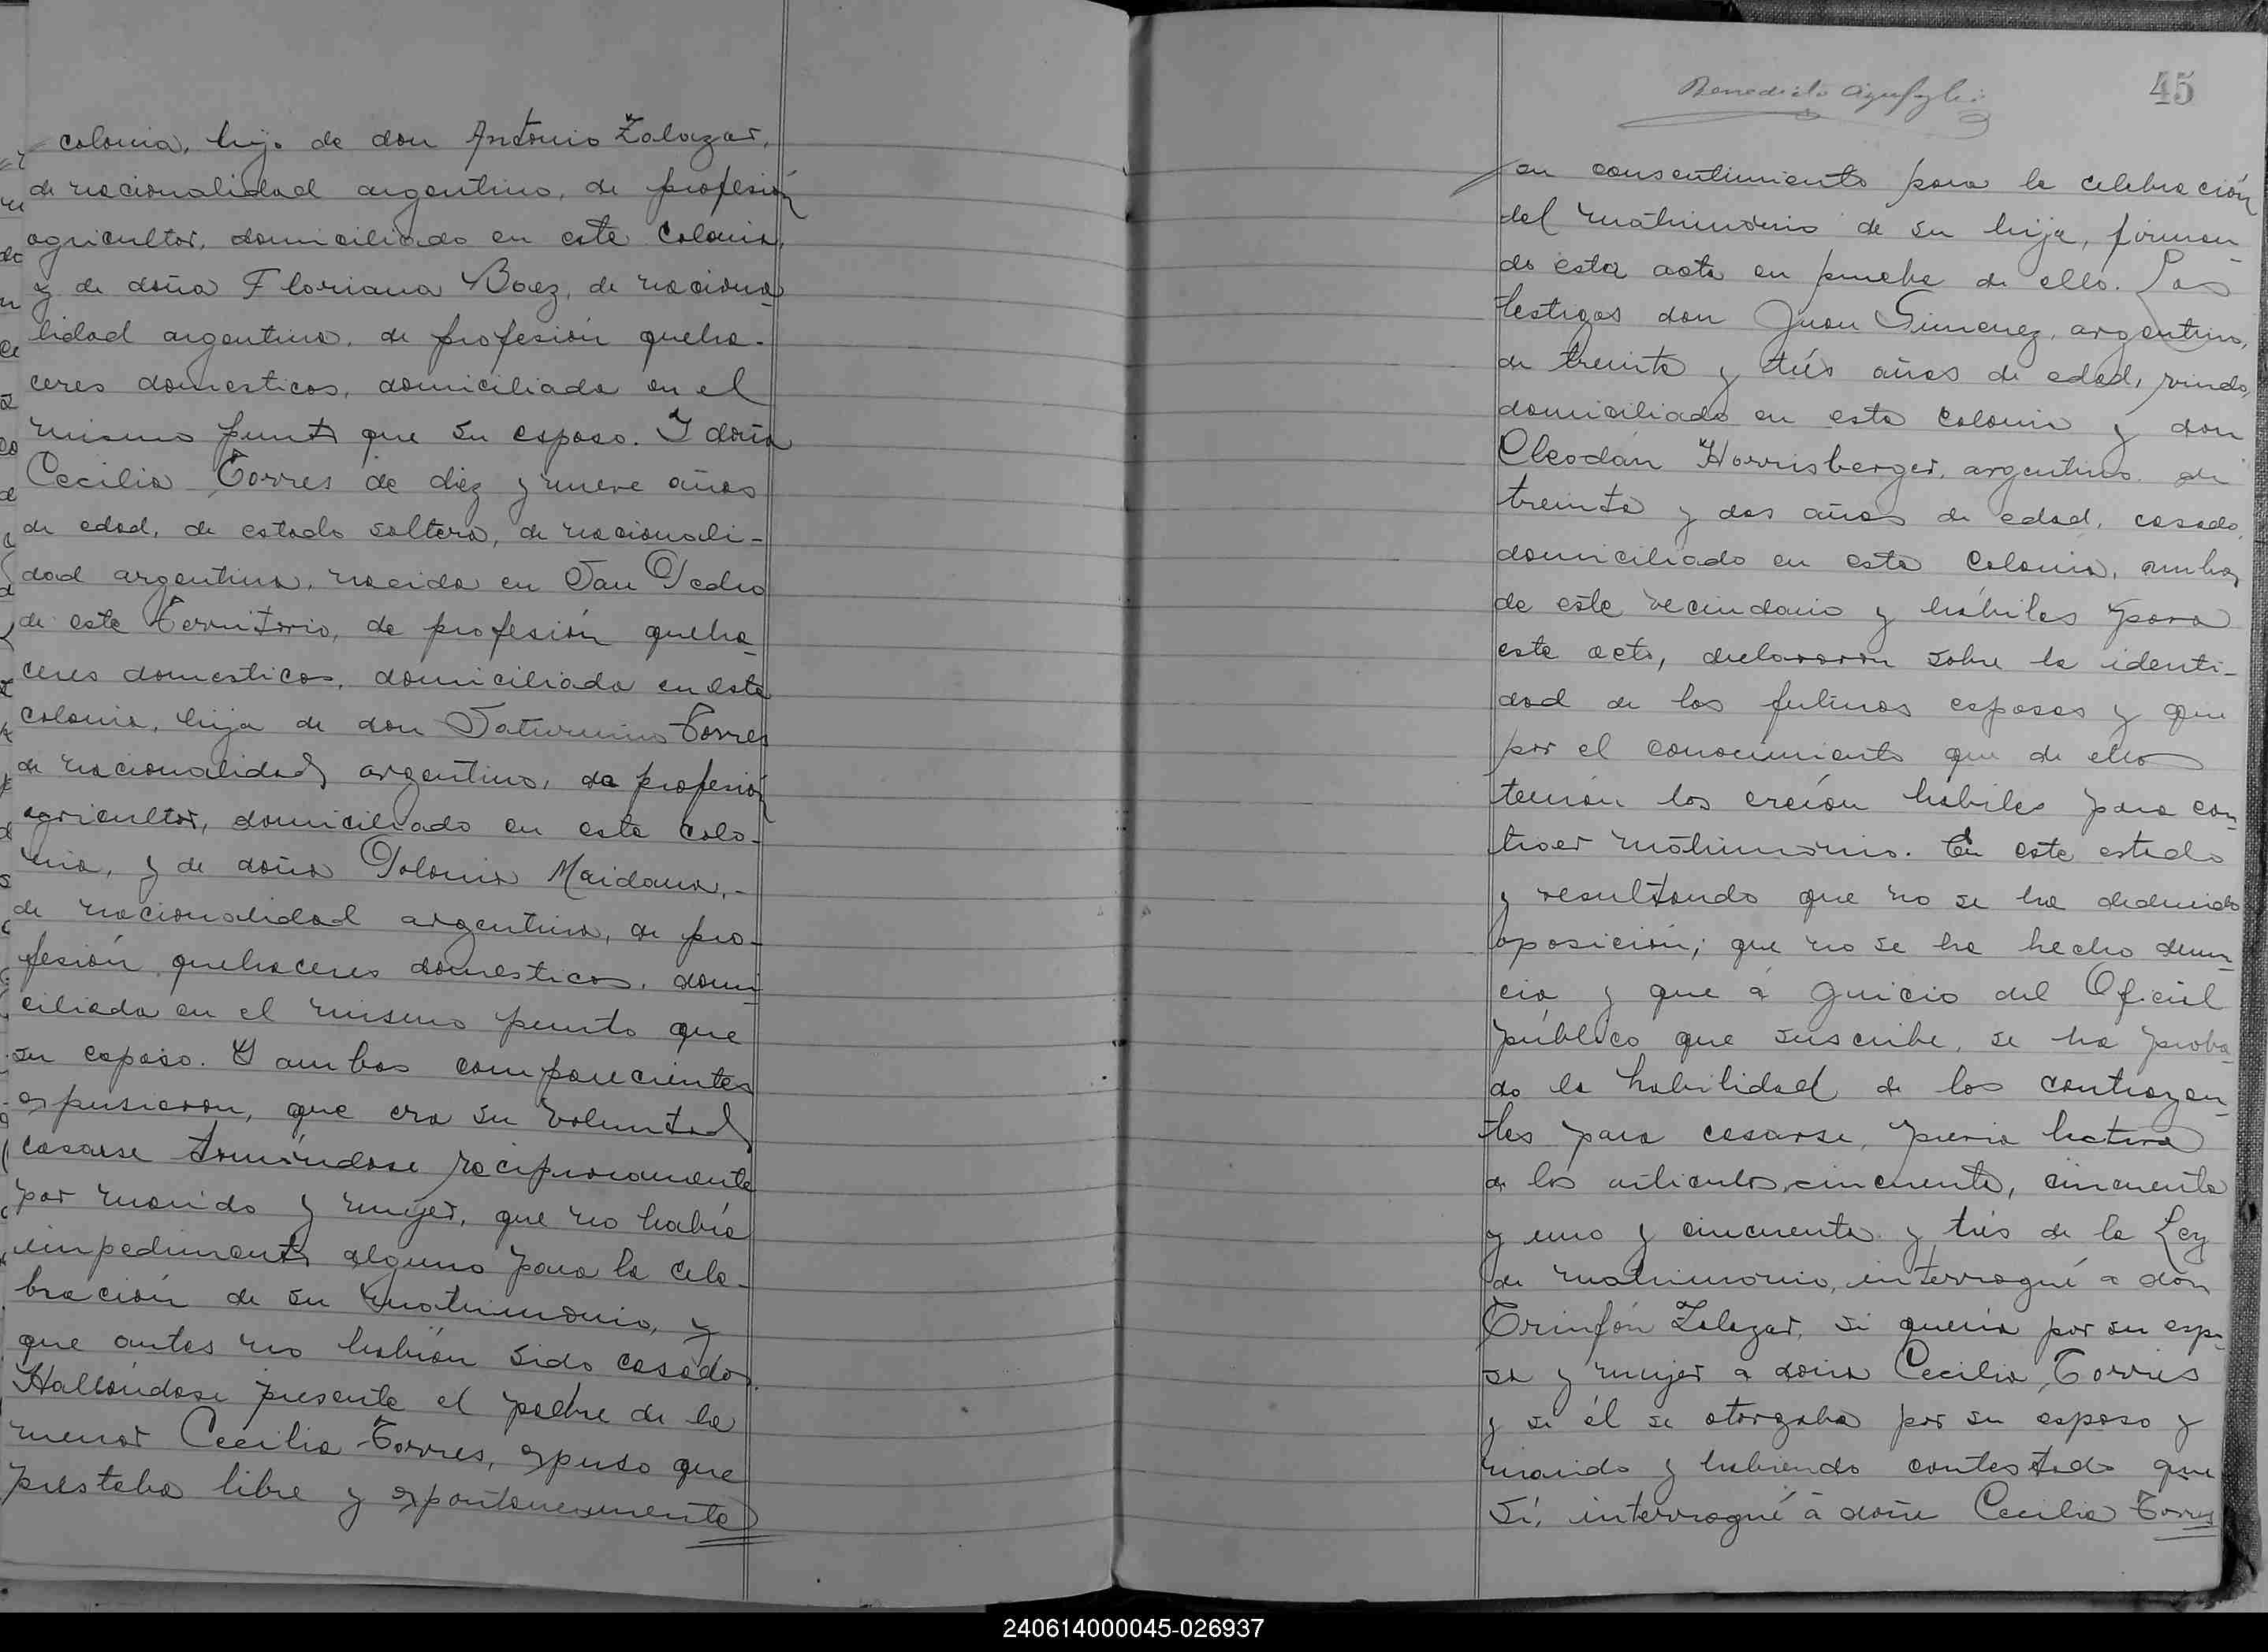 colonia, hijo de don Antonio Zalazar,
de nacionalidad argentino, de profesión
agricultor, domiciliado en esta Colonia,
y de doña Floriana Baez, de naciona-
lidad argentina, de profesión queha-
ceres domesticos, domiciliada en el
mismo punto que su esposo. I doña
Cecilia Torres de diez y nueve años
de edad, de estado soltera, de nacionali-
dad argentina, nacida en San Pedro
de este Territorio, de profesión queha-
ceres domesticos, domiciliada en esta
colonia, hija de don Saturnino Torres
de nacionalidad argentino, de profesión
agricultor, domiciliado en esta colo-
nia, y de doña Polonia Maidana,-
de nacionalidad argentina, de pro-
fesión quehaceres domesticos, domi-
ciliada en el mismo punto que
su esposo. Y ambos comparecientes
expusieron, que era su voluntad
casarse tomándose reciprocamente
por marido y mujer, que no había
impedimento alguno para la cele-
bración de su matrimonio, y
que antes no habían sido casados.
Hallándose presente el padre de la
menor Cecilia Torres, expuso que
prestaba libre y espontaneamente
45
Benedicto
su consentimiento para la celebración
del matrimonio de su hija, firman-
do esta acta en prueba de ello. Los
testigos don Juan Gimenez, argentino,
de treinta y trés años de edad, viudo,
domiciliado en esta Colonia y don
Cleodán Horrisberger, argentino de
treinta y dos años de edad, casado,
domiciliado en esta Colonia, ambos
de este vecindario y hábiles para
este acto, declararon sobre la identi-
dad de los futuros esposos y que
por el conocimiento que de ellos
tenían los creían hábiles para con-
traer matrimonio. En este estado
y resultando que no se ha deducido
oposición; que no se ha hecho denun-
cia y que á guicio del Oficial
público que suscribe, se ha proba-
do la habilidad de los contrayen-
tes para casarse, previa lectura
de los articulos cincuenta, cincuenta
y uno y cincuenta y trés de la Ley
de matrimonio, interrogué a don
Trinfón Zalazar, si quería por su espo-
sa y mujer a doña Cecilia Torres
y si él se otorgaba por su esposo y
marido y habiendo contestado que
sí, interrogué á doña Cecilia Torres
240614000045-026937